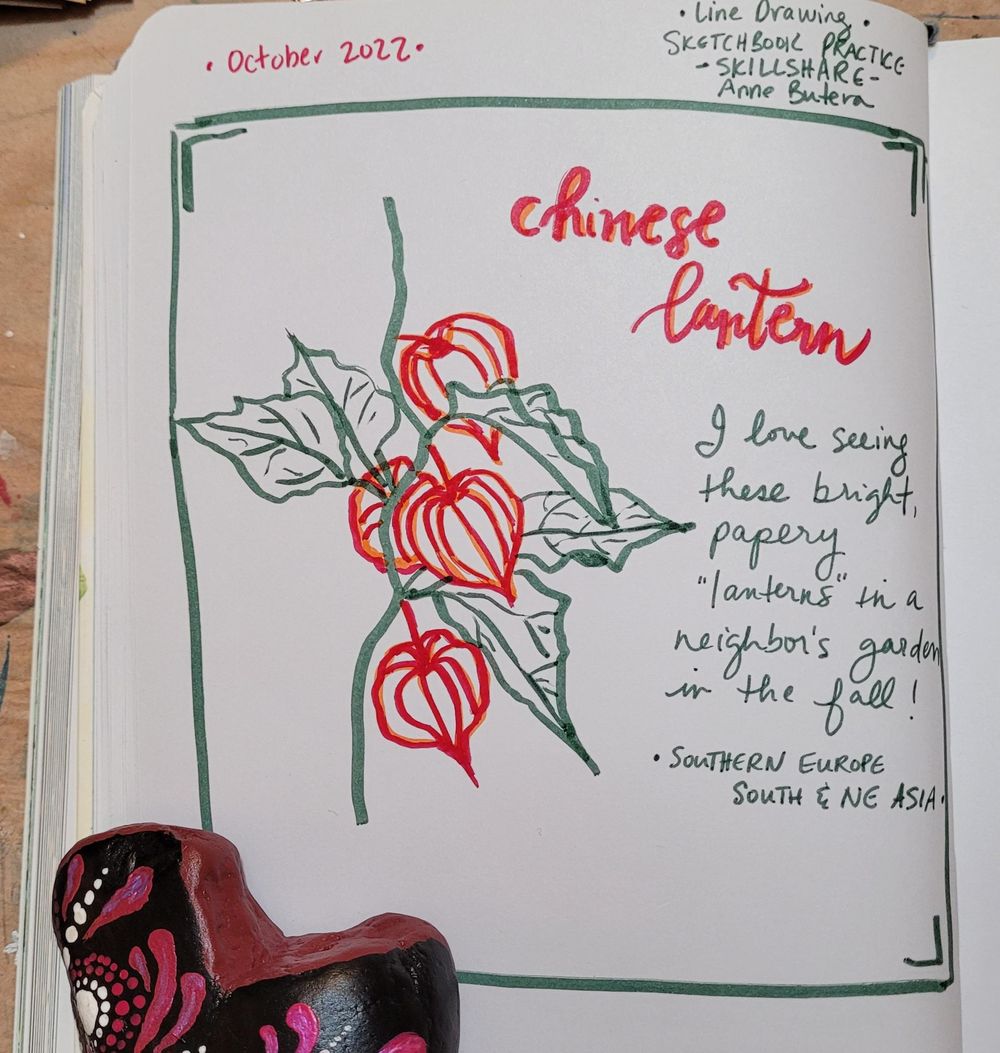 • October 2022 •
• Line Drawing •
SKETCHBOOK PRACTICE
- SKILLSHARE -
Anne Butera
chinese
lantern
I love seeing
these bright,
papery
"lanterns" in a
neighbor's garden
in the fall!
• SOUTHERN EUROPE
SOUTH & NE ASIA •